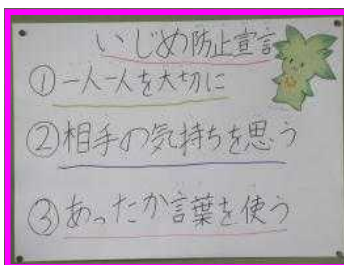 いじめ防止宣言
①一人一人を大切に
②相手の気持ちを思う
③あったか言葉を使う